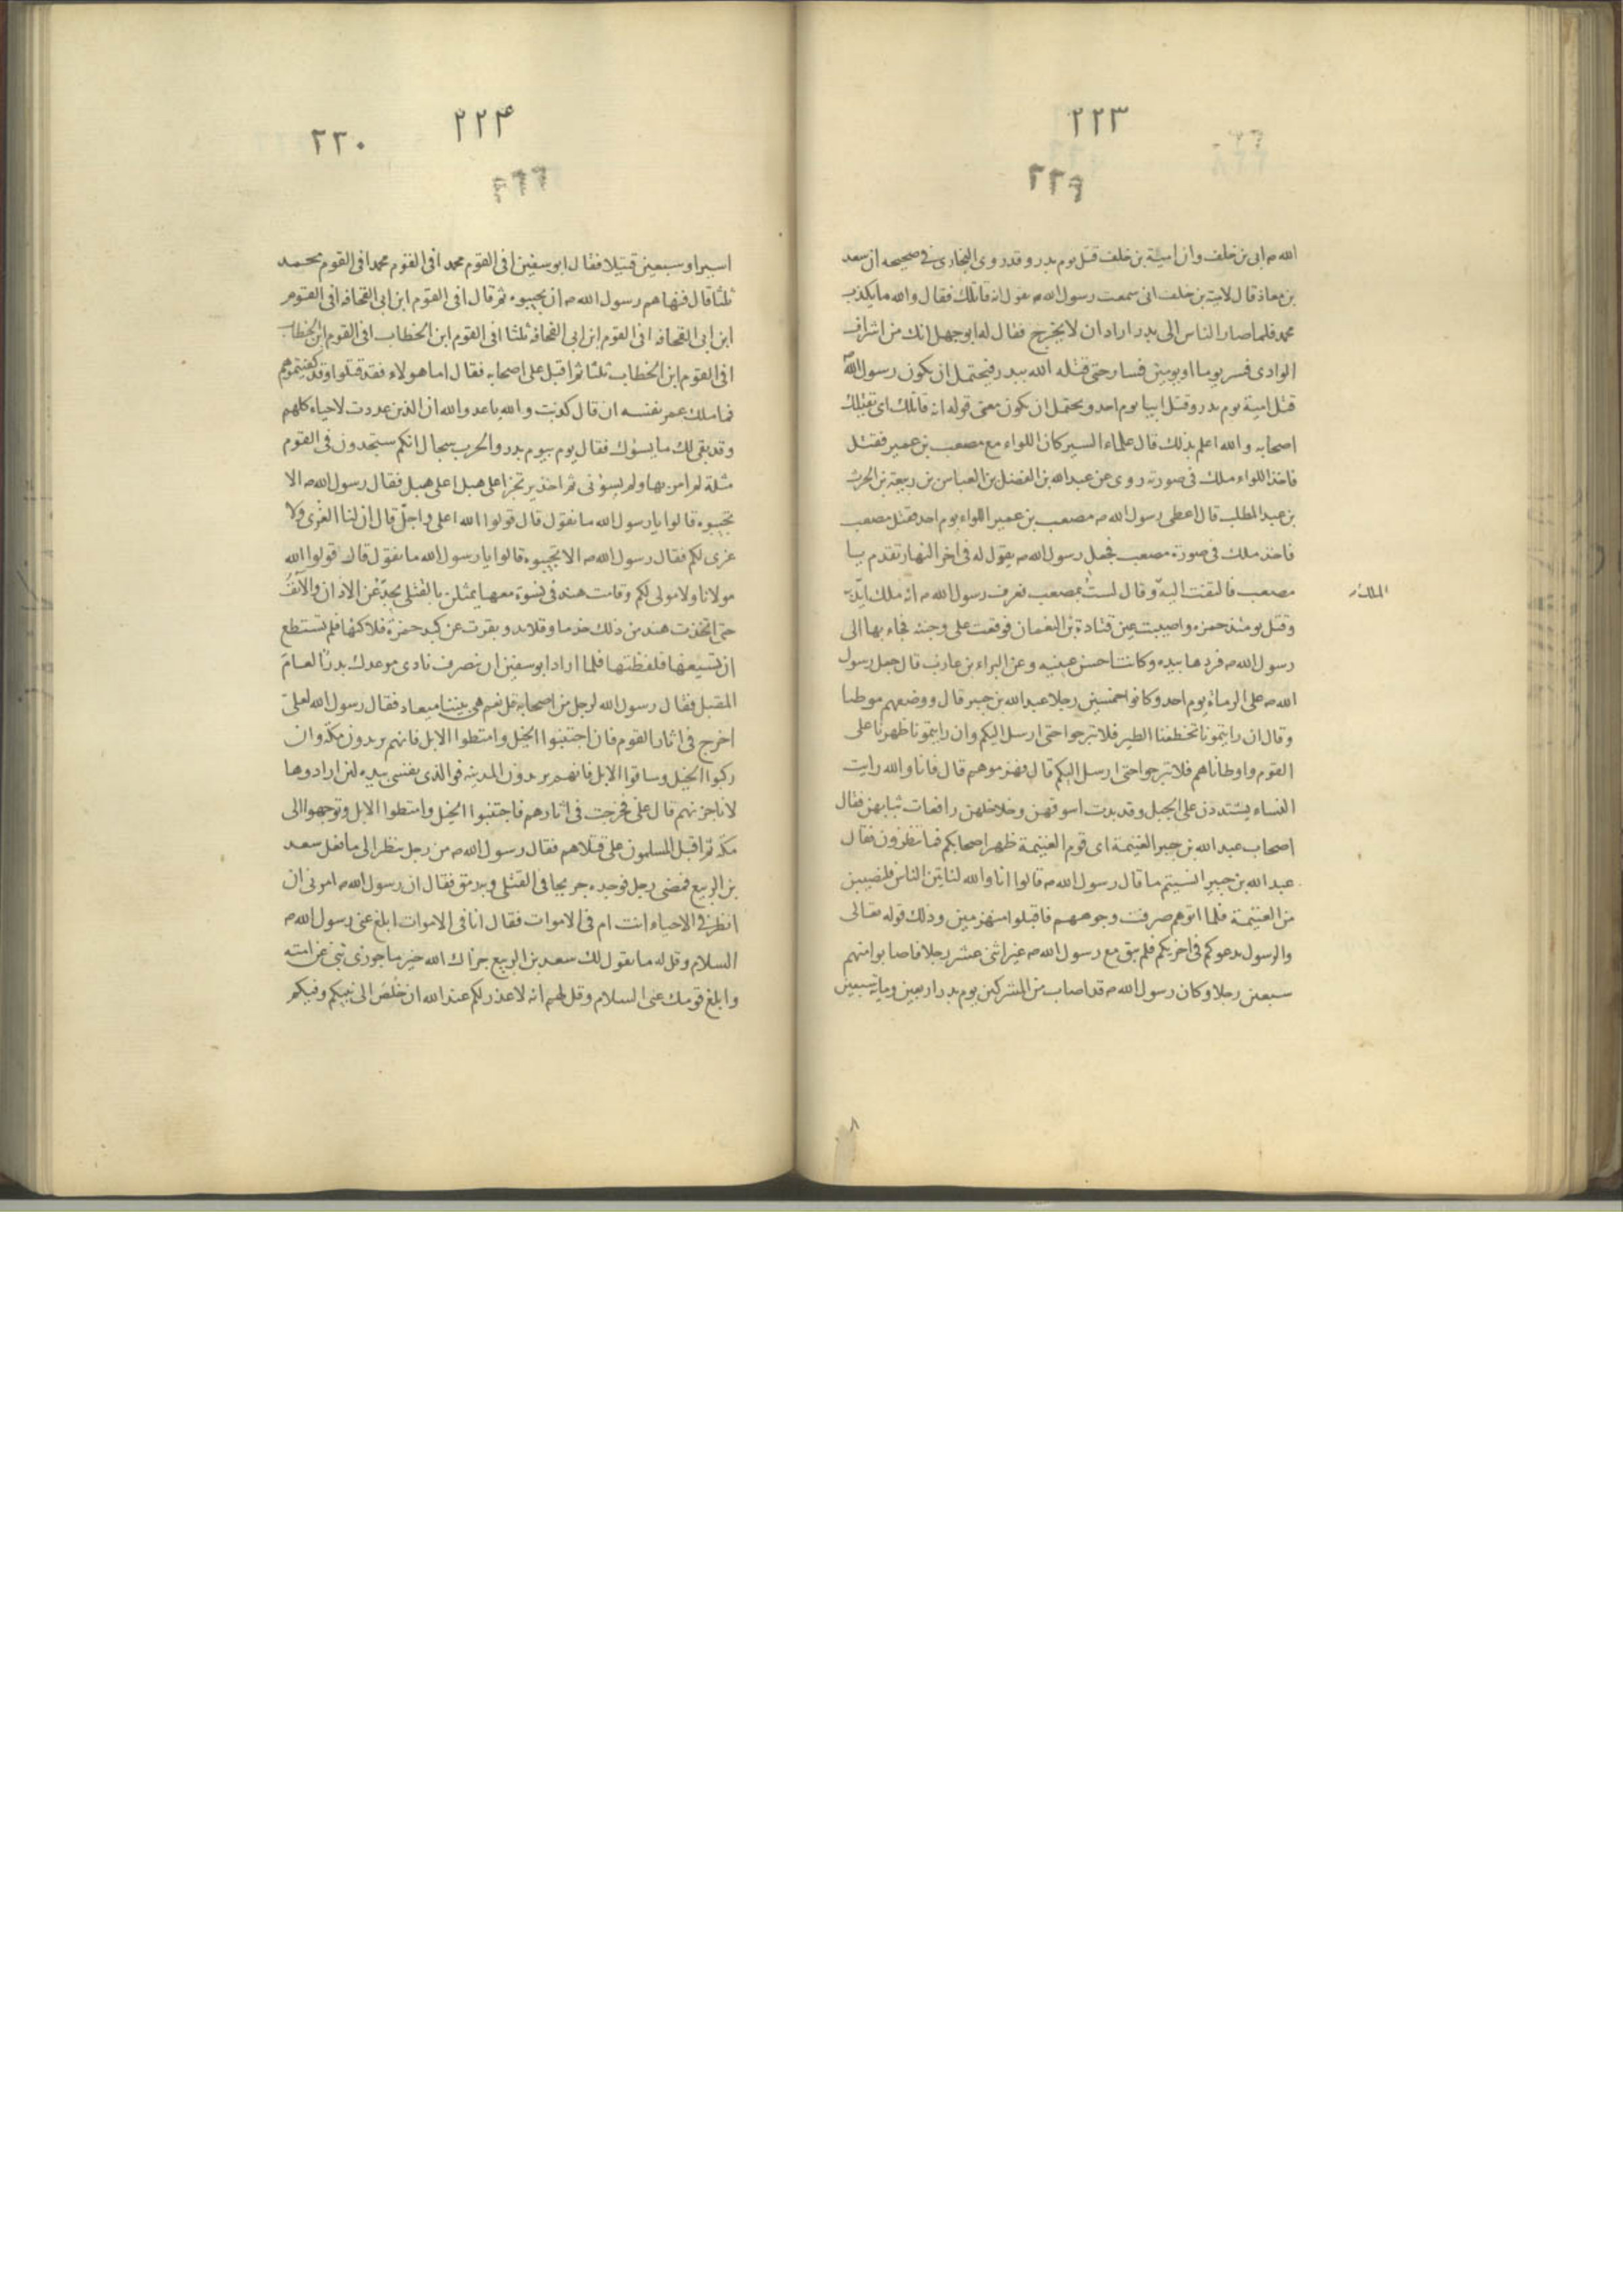 ٢٢٣
٢٢٩
الله ص ابي بن خلف وان امية بن خلف قتل يوم بدر وقد روى البخارى في صحيحه ان سعد
بن معاذ قال لامية بن خلف انى سمعت رسول الله ص يقول انه قاتلك فقال والله ما يكذب
محمد فلما صار الناس الى بدر اراد ان لا يخرج فقال له ابو جهل انك من اشراف
الوادى فسر يوما او يومين فسار حتى قتله الله ببدر فيحتمل ان يكون رسول الله
قتل امية يوم بدر وقتل ابيا يوم احد ويحتمل ان يكون معنى قوله انه قاتلك اى تقتلك
اصحابه والله اعلم بذلك قال علماء السير كان اللواء مع مصعب بن عمير فقتل
فاخذ اللواء ملك في صورته روى عن عبدالله بن الفضل بن العباس بن ربيعة بن الحرث
بن عبد المطلب قال اعطى رسول الله ص مصعب بن عمير اللواء يوم احد فقتل مصعب
فاخذ ملك في صورة مصعب فجعل رسول الله ص يقول له في اخر النهار تقدم يا
مصعب فالتفت اليه وقال لست بمصعب فعرف رسول الله ص انه ملك ايد به
الملك
وقتل يومئذ حمزه واصيبت عين قتادة بن النعمان فوقعت على وجنته فجاء بها الى
رسول الله ص فردها بيده وكانت احسن عينيه وعن البراء بن عازب قال جعل رسول
الله ص على الرماة يوم احد وكانوا خمسين رجلا عبد الله بن جبير قال ووضعهم موطنا
وقال ان رايتمونا تخطفنا الطير فلا تبرحوا حتى ارسل اليكم وان رايتمونا ظهرنا على
القوم واوطاناهم فلا تبرحوا حتى ارسل اليكم قال فهزموهم قال فانا والله رايت
النساء يشتددن على الجبل وقد بدت اسوقهن وخلاخلهن رافعات ثيابهن فقال
اصحاب عبد الله بن جبير الغنيمة اى قوم الغنيمة ظهر اصحابكم فما تنظرون فقال
عبد الله بن جبير انسيتم ما قال رسول الله ص قالوا انا والله لناتين الناس فلنصيبن
من الغنيمة فلما اتوهم صرفت وجوههم فاقبلوا منهزمين وذلك قوله تعالى
والرسول يدعوكم في اخريكم فلم يبق مع رسول الله ص غير اثنى عشر رجلا فاصابوا منهم
سبعين رجلا وكان رسول الله ص قد اصاب من المشركين يوم بدر اربعين وماية سبعين
٢٢۴
٢٣٠
اسيرا وسبعين قتيلا فقال ابو سفين افى القوم محمد افى القوم محمد افى القوم محمد
ثلثا قال فنهاهم رسول الله ص ان يجيبوه ثم قال افى القوم ابن ابى القحافه افى القوم
ابن ابى القحافه افى القوم ابن ابى القحافه ثلثا افى القوم ابن الخطاب افى القوم ابن الخطاب
افى القوم ابن الخطاب ثلثا ثم اقبل على اصحابه فقال اما هولاء فقد قتلوا وقد كفيتموهم
فما ملك عمر نفسه ان قال كذبت والله يا عدو الله ان الذين عددت لاحياء كلهم
وقد بقى لك ما يسوك فقال يوم بيوم بدر والحرب سجال انكم ستجدون في القوم
مثلة لم امر بها ولم يسؤنى ثم اخذ يرتجز اعلى هبل اعلى هبل فقال رسول الله ص الا
تجيبوه قالوا يا رسول الله ما نقول قال قولوا الله اعلى واجلّ قال ان لنا العزى ولا
عزى لكم فقال رسول الله ص الا تجيبوه قالوا يا رسول الله ما نقول قال قولوا الله
مولانا ولا مولى لكم وقامت هند في نسوة معها يمثلن بالقتلى يجدّعن الاذان والآنف
حتى اتخذت هند من ذلك خدما وقلايد وبقرت عن كبد حمزة فلاكتها فلم تستطع
ان تسيغها فلفظتها فلما اراد ابو سفين ان ينصرف نادى موعدك بدر العام
المقبل فقال رسول الله لرجل من اصحابه قل نعم هى بيننا ميعاد فقال رسول الله لعلى
اخرج في اثار القوم فان اجتنبوا الخيل وامتطوا الابل فانهم يريدون مكة وان
ركبوا الخيل وساقوا الابل فانهم يريدون المدينه فو الذى نفسى بيده لئن ارادوها
لاناجزنهم قال على فخرجت في اثارهم فاجتنبوا الخيل وامتطوا الابل وتوجهوا الى
مكة ثم اقبل المسلمون على قتلاهم فقال رسول الله ص من رجل ينظر الى ما فعل سعد
بن الربيع فمضى رجل فوجده جريحا في القتلى وبه رمق فقال ان رسول الله ص امرنى ان
انظر في الاحياء انت ام في الاموات فقال انا في الاموات ابلغ عنى رسول الله ص
السلام وقل له ما يقول لك سعد بن الربيع جزاك الله خير ما جوزى نبى عن امته
وابلغ قومك عنى السلام وقل لهم انه لا عذر لكم عند الله ان خلص الى نبيكم وفيكم